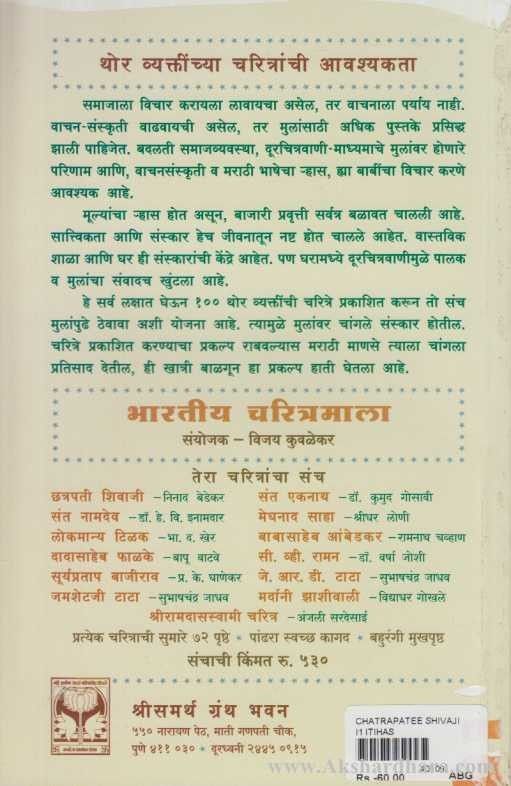 थोर व्यक्तींच्या चरित्रांची आवश्यकता
समाजाला विचार करायला लावायचा असेल, तर वाचनाला पर्याय नाही.
वाचन-संस्कृती वाढवायची असेल, तर मुलांसाठी अधिक पुस्तके प्रसिद्ध
झाली पाहिजेत. बदलती समाजव्यवस्था, दूरचित्रवाणी-माध्यमाचे मुलांवर होणारे
परिणाम आणि, वाचनसंस्कृती व मराठी भाषेचा ऱ्हास, ह्या बाबींचा विचार करणे
आवश्यक आहे.
मूल्यांचा ऱ्हास होत असून, बाजारी प्रवृत्ती सर्वत्र बळावत चालली आहे.
सात्त्विकता आणि संस्कार हेच जीवनातून नष्ट होत चालले आहेत. वास्तविक
शाळा आणि घर ही संस्कारांची केंद्रे आहेत. पण घरामध्ये दूरचित्रवाणीमुळे पालक
व मुलांचा संवादच खुंटला आहे.
हे सर्व लक्षात घेऊन १०० थोर व्यक्तींची चरित्रे प्रकाशित करून तो संच
मुलांपुढे ठेवावा अशी योजना आहे. त्यामुळे मुलांवर चांगले संस्कार होतील.
चरित्रे प्रकाशित करण्याचा प्रकल्प राबवल्यास मराठी माणसे त्याला चांगला
प्रतिसाद देतील, ही खात्री बाळगून हा प्रकल्प हाती घेतला आहे.
भारतीय चरित्रमाला
संयोजक – विजय कुवळेकर
तेरा चरित्रांचा संच
छत्रपती शिवाजी –निनाद बेडेकर संत एकनाथ –डॉ. कुमुद गोसावी
संत नामदेव –डॉ. हे. वि. इनामदार मेघनाद साहा –श्रीधर लोणी
लोकमान्य टिळक –भा. द. खेर बाबासाहेब आंबेडकर –रामनाथ चव्हाण
दादासाहेब फाळके –बापू वाटवे सी. व्ही. रामन –डॉ. वर्षा जोशी
सूर्यप्रताप बाजीराव –प्र. के. घाणेकर जे. आर. डी. टाटा –सुभाषचंद्र जाधव
जमशेटजी टाटा –सुभाषचंद्र जाधव मर्दानी झाशीवाली –विद्याधर गोखले
श्रीरामदासस्वामी चरित्र –अंजली सरदेसाई
प्रत्येक चरित्राची सुमारे ७२ पृष्ठे • पांढरा स्वच्छ कागद • बहुरंगी मुखपृष्ठ
संचाची किंमत रु. ५३०
श्रीसमर्थ ग्रंथ भवन
५५० नारायण पेठ, माती गणपती चौक,
पुणे ४११ ०३० • दूरध्वनी २४४५ ०९१५
CHATRAPATEE SHIVAJI
I1 ITIHAS
Rs.-60.00 ABG
www.Akshardhara.com